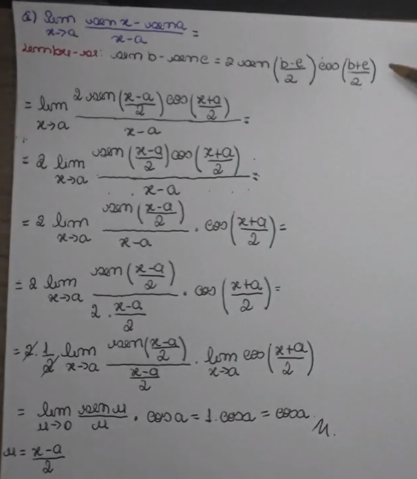 a) lim x→a (sen x - sen a)/(x-a) =
Lembre-se: sen b - sen c = 2 sen((b-c)/2) cos((b+c)/2)
= lim x→a (2 sen((x-a)/2) cos((x+a)/2))/(x-a) =
= 2 lim x→a (sen((x-a)/2) cos((x+a)/2))/(x-a) =
= 2 lim x→a (sen((x-a)/2))/(x-a) . cos((x+a)/2) =
= 2 lim x→a (sen((x-a)/2))/(2 . (x-a)/2) . cos((x+a)/2) =
= 2 . 1/2 lim x→a (sen((x-a)/2))/((x-a)/2) . lim x→a cos((x+a)/2)
= lim u→0 (sen u)/u . cos a = 1 . cos a = cos a
u = (x-a)/2